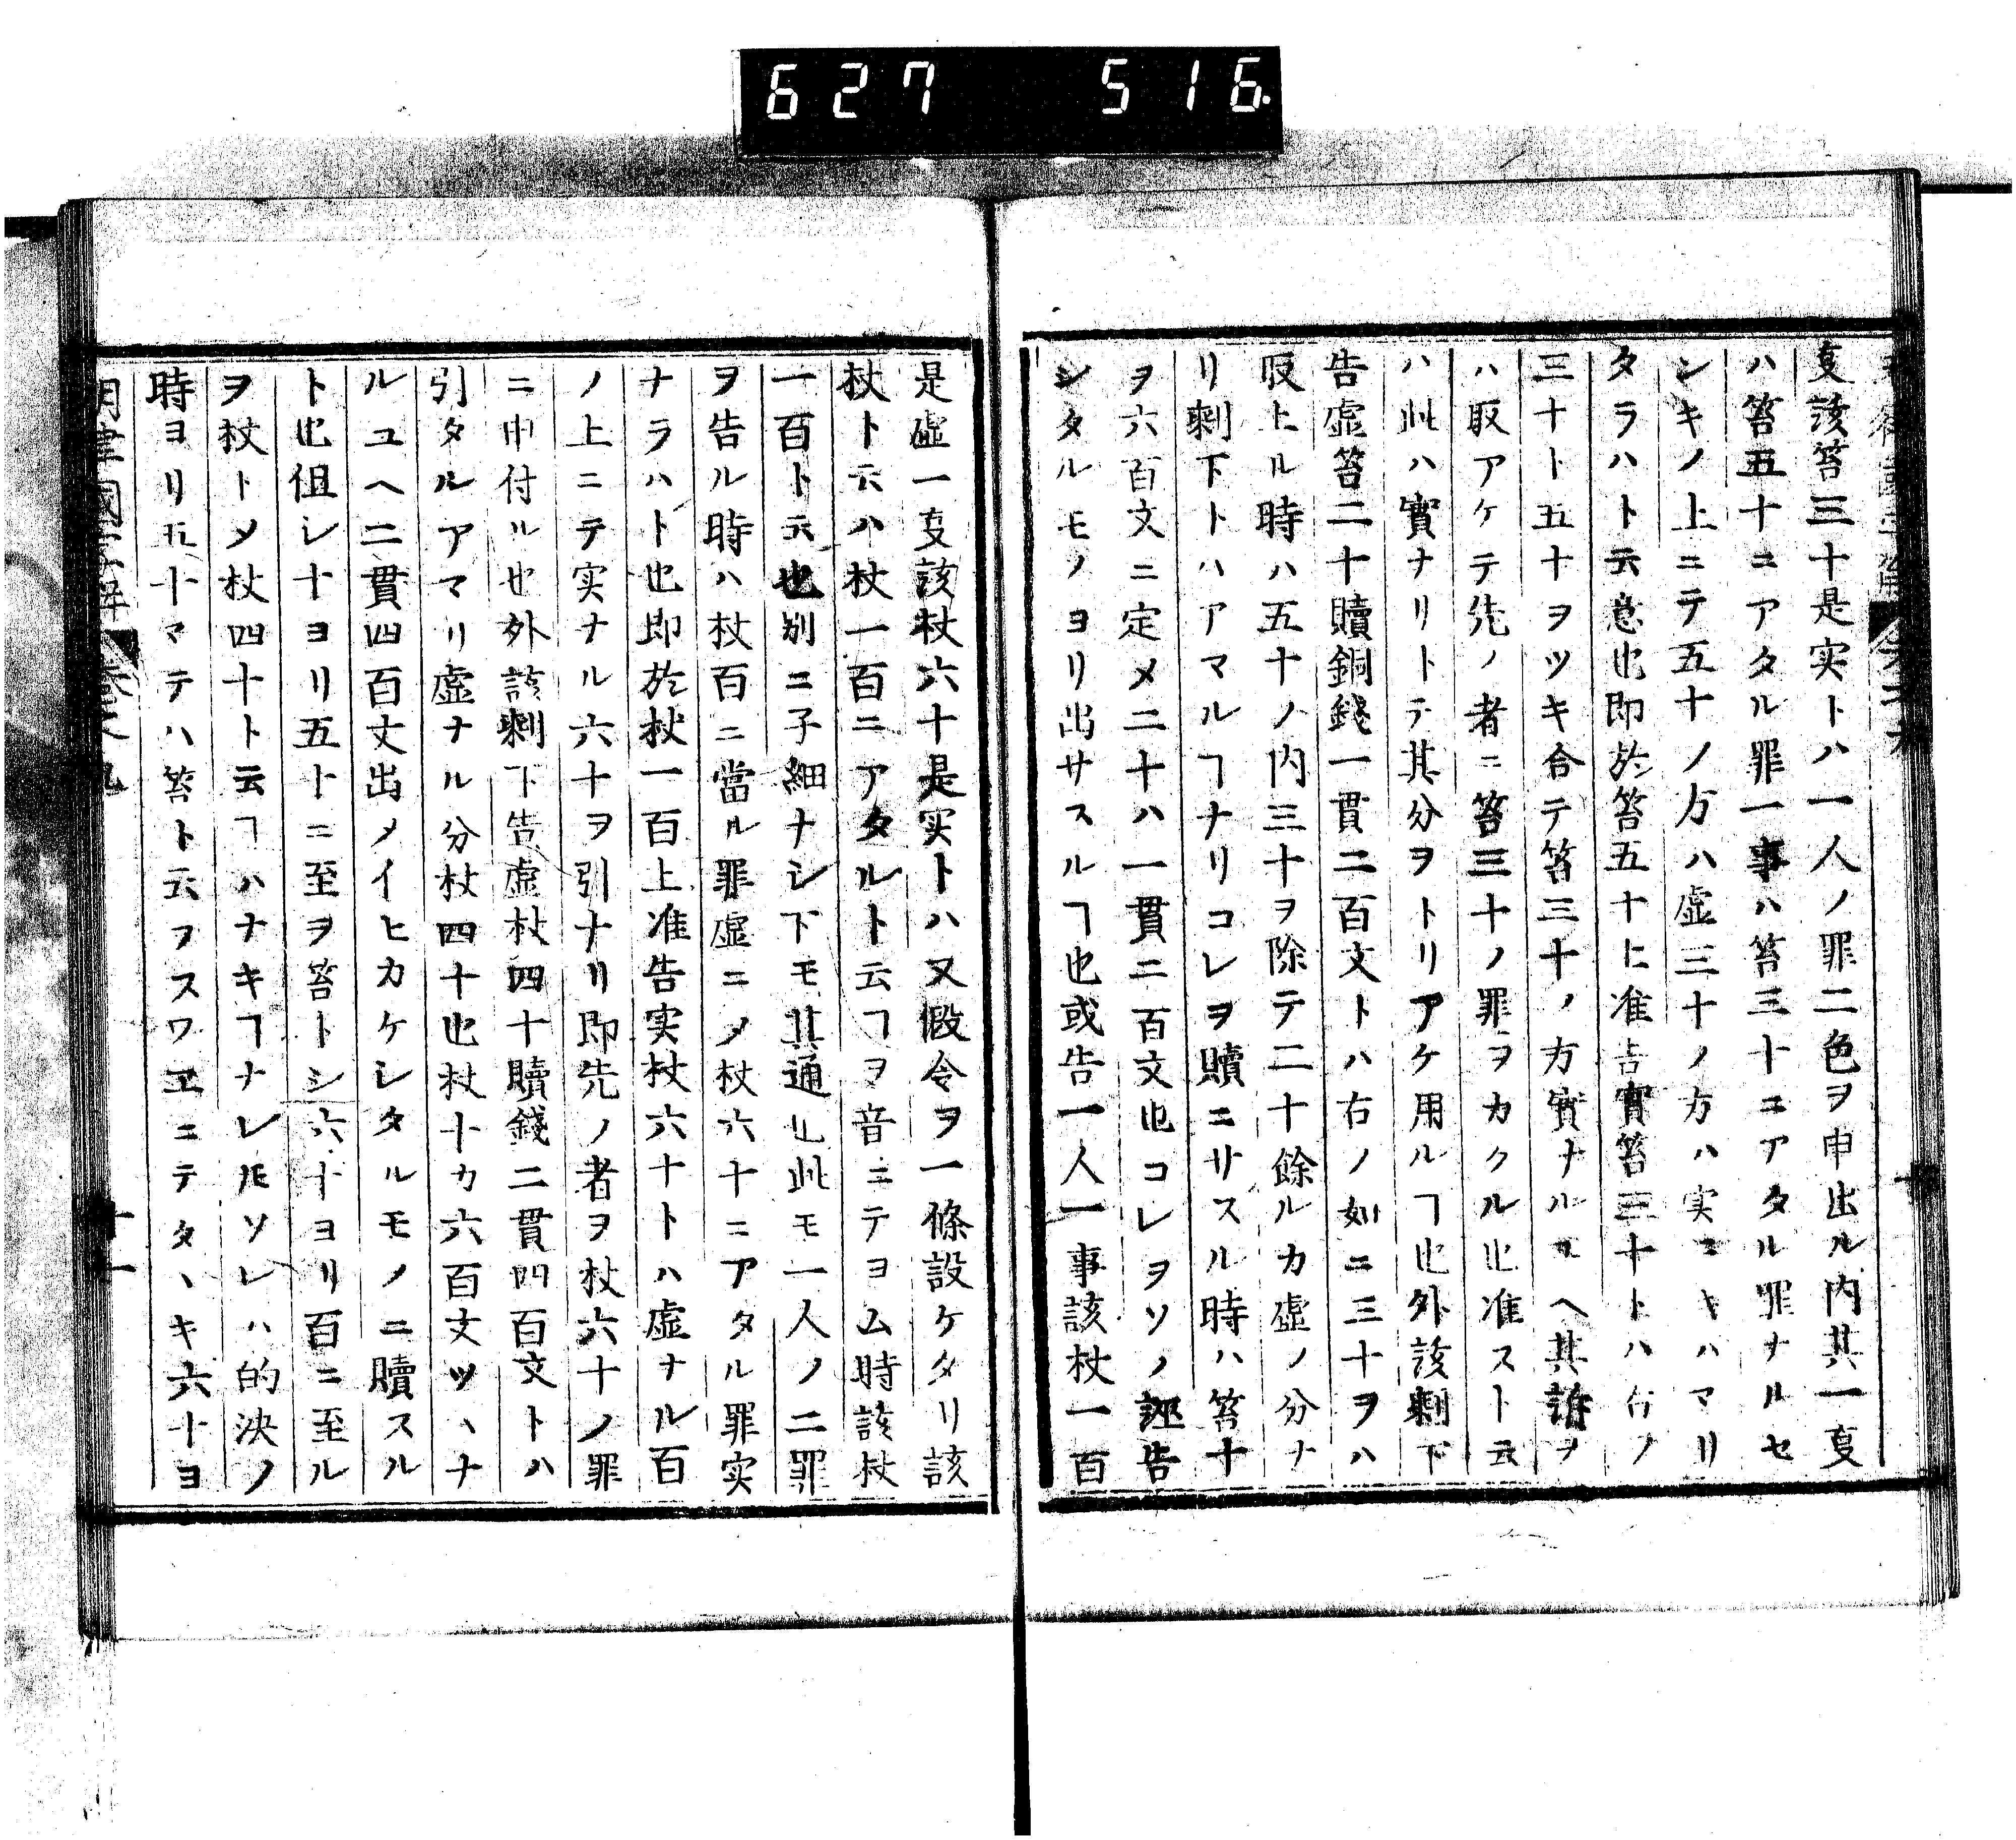 627 516
㕝該笞三十是実トハ一人ノ罪二色ヲ申出ル内其一㕝
ハ笞五十ニアタル罪一事ハ笞三十ニアタル罪ナルセ
ンキノ上ニテ五十ノ方ハ虚三十ノ方ハ実ニキハマリ
タラハト云意也即於笞五十上准告實笞三十トハ右ノ
三十ト五十ヲツキ合テ笞三十ノ方實ナルユヘ其訴ヲ
ハ取アケテ先ノ者ニ笞三十ノ罪ヲカクル也准スト云
ハ此ハ實ナリトテ其分ヲトリアケ用ルヿ也外該剰下
告虚笞二十贖銅錢一貫二百文トハ右ノ如ニ三十ヲハ
取上ル時ハ五十ノ内三十ヲ除テ二十餘ルカ虚ノ分ナ
リ剰下トハアマルヿナリコレヲ贖ニサスル時ハ笞十
ヲ六百文ニ定メ二十ハ一貫二百文也コレヲソノ誣告
シタルモノヨリ出サスルヿ也或告一人一事該杖一百
是虚一㕝該杖六十是実トハ又假令ヲ一條設ケタリ該
杖ト云ハ杖一百ニアタルト云ヿヲ音ニテヨム時該杖
一百ト云也別ニ子細ナシ下モ其通也此モ一人ノ二罪
ヲ告ル時ハ杖百ニ當ル罪虚ニメ杖六十ニアタル罪実
ナラハト也即於杖一百上准告実杖六十トハ虚ナル百
ノ上ニテ実ナル六十ヲ引ナリ即先ノ者ヲ杖六十ノ罪
ニ申付ル也外該剰下告虚杖四十贖錢二貫四百文トハ
引タルアマリ虚ナル分杖四十也杖十カ六百文ツヽナ
ルユヘ二貫四百文出メイヒカケシタルモノニ贖スル
ト也但シ十ヨリ五十ニ至ヲ笞トシ六十ヨリ百ニ至ル
ヲ杖トメ杖四十ト云ヿハナキヿナレ𪜈ソレハ的决ノ
時ヨリ五十マテハ笞ト云フスワヱニテタヽキ六十ヨ
十一